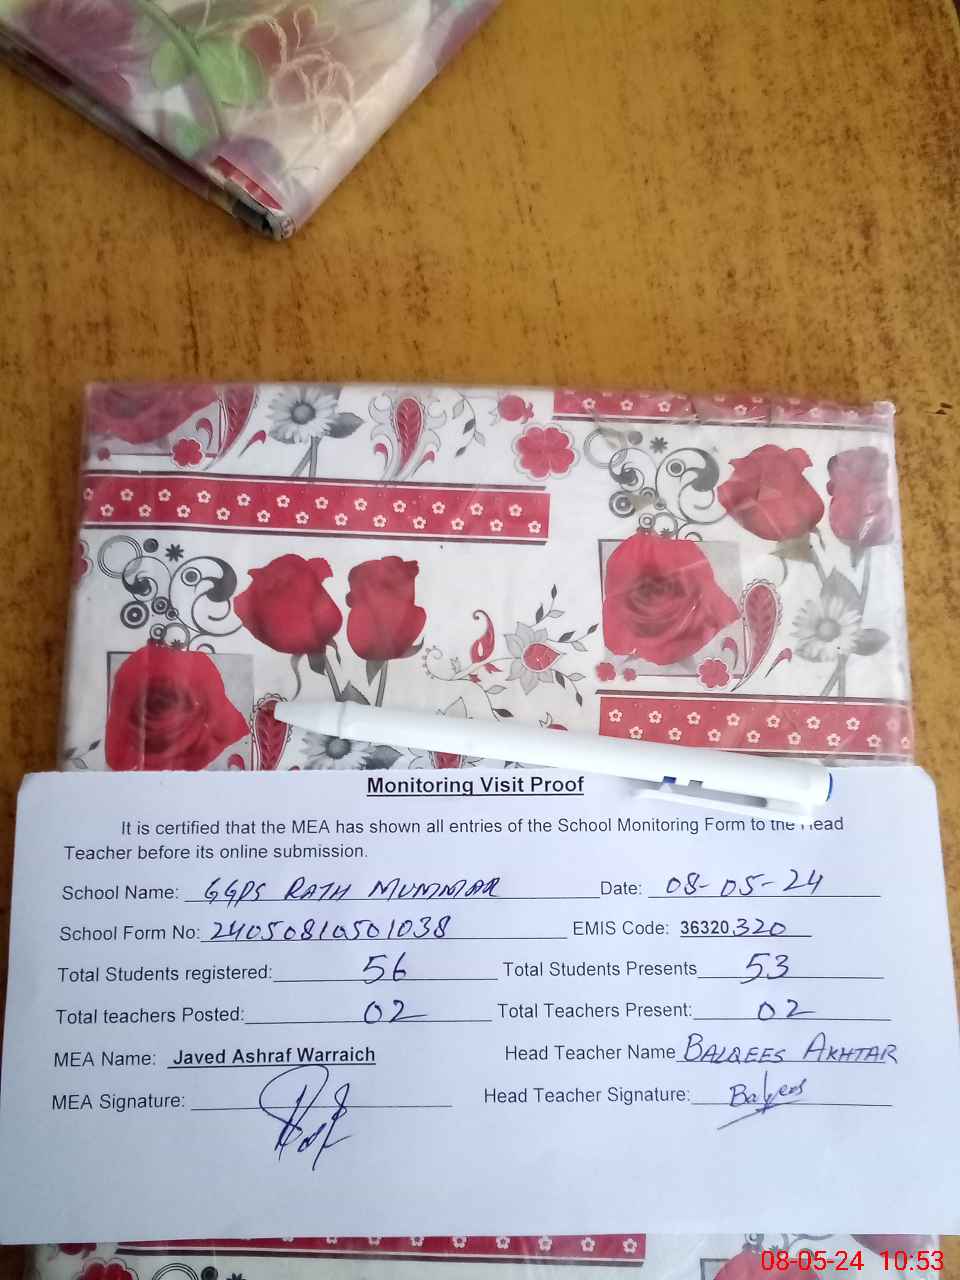 Monitoring Visit Proof
It is certified that the MEA has shown all entries of the School Monitoring Form to the Head
Teacher before its online submission.
School Name: GGPS RATH MUMMAR Date: 08-05-24
School Form No: 24050810501038 EMIS Code: 36320320
Total Students registered: 56 Total Students Presents 53
Total teachers Posted: 02 Total Teachers Present: 02
MEA Name: Javed Ashraf Warraich Head Teacher Name BALQEES AKHTAR
MEA Signature: Head Teacher Signature: Balqees
08-05-24 10:53